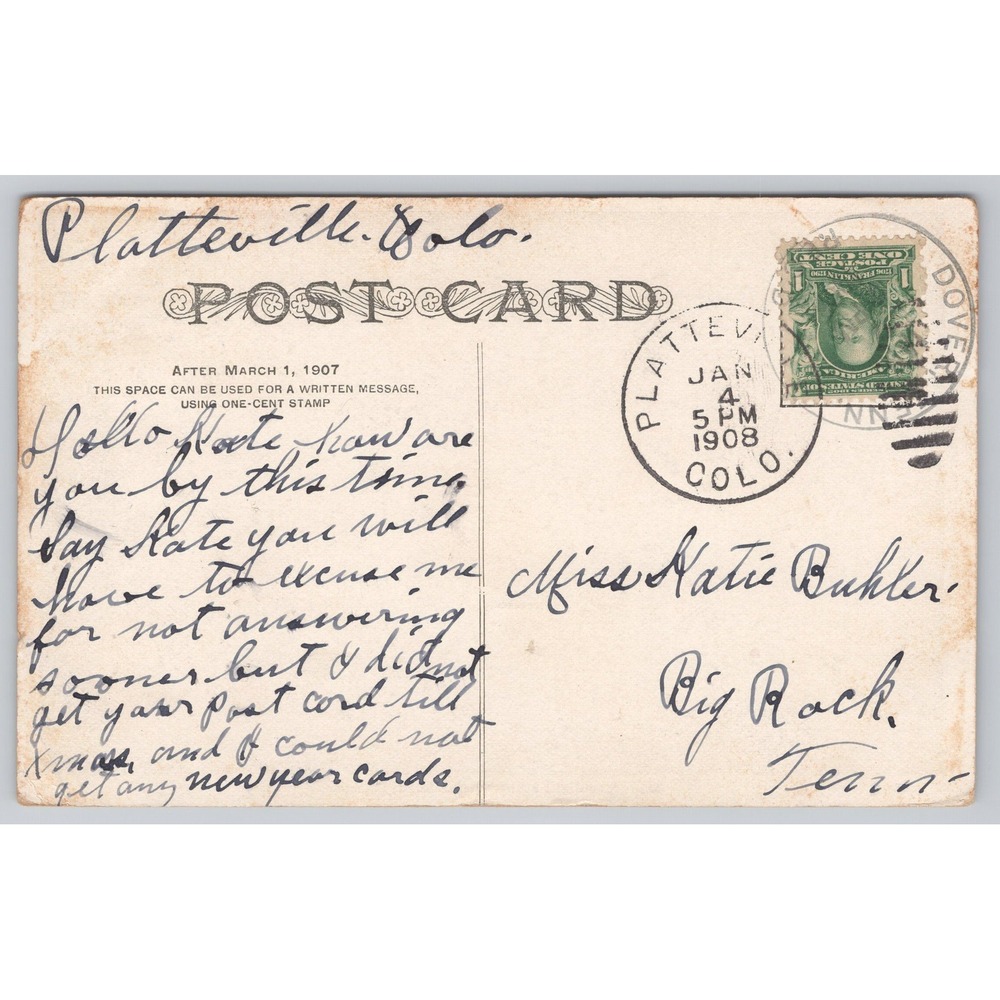 Platteville. Colo.
POST CARD
AFTER MARCH 1, 1907
THIS SPACE CAN BE USED FOR A WRITTEN MESSAGE,
USING ONE-CENT STAMP
Hello Kate how are
you by this time.
Say Kate you will
have to excuse me
for not answering
sooner but I did not
get your post card till
Xmas, and I could not
get any new year cards.
PLATTEVI
JAN
4
5 PM
1908
COLO.
DOVER
TENN
1 1
ONE CENT
POSTAGE
1706 FRANKLIN 1790
SERIES 1902
UNITED STATES OF
AMERICA
Miss Katie Buhler.
Big Rock.
Tenn-